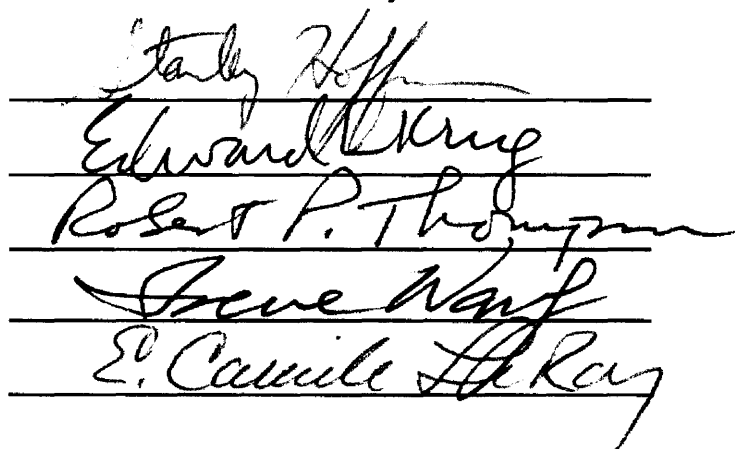 Stanley Hoffman
Edward D Krug
Robert P. Thompson
Irene Wang
E. Camille LaRay